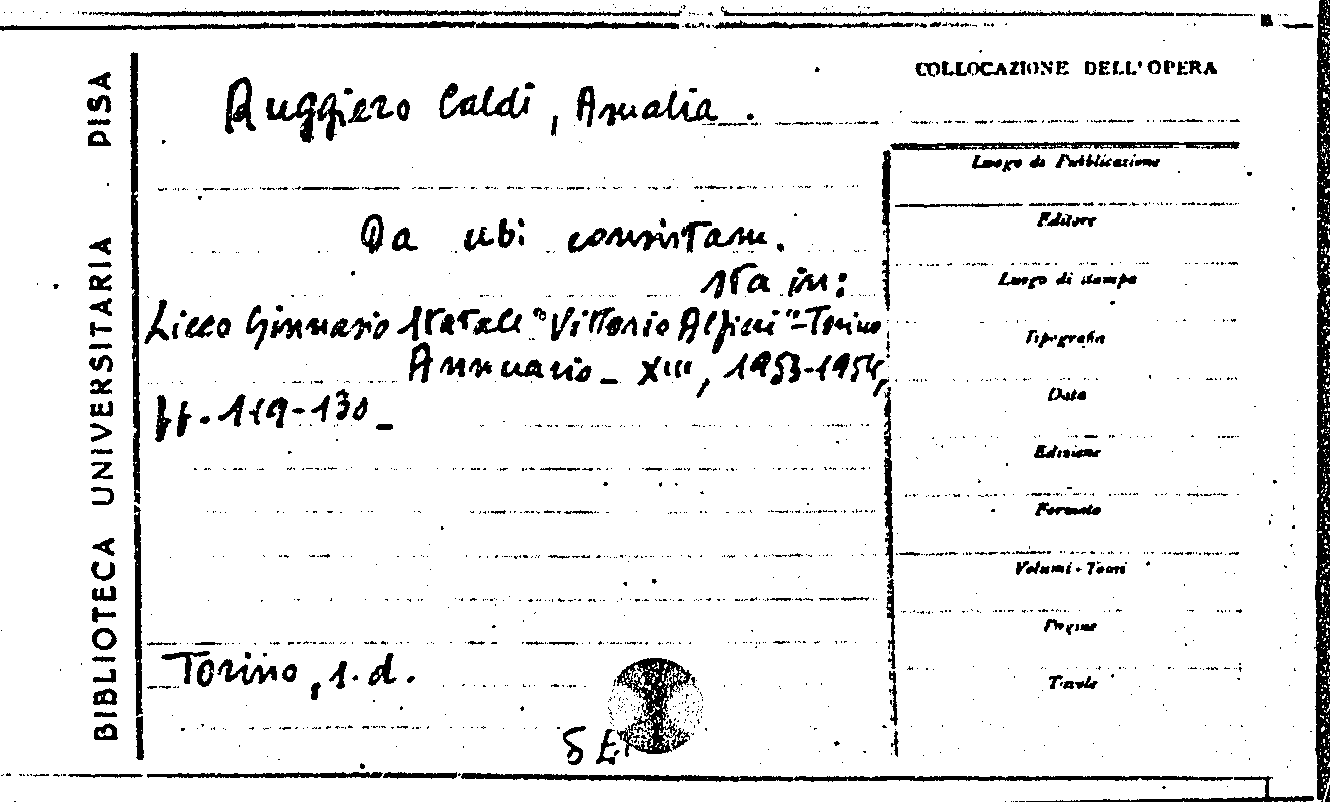 BIBLIOTECA UNIVERSITARIA PISA
COLLOCAZIONE DELL'OPERA
Ruggiero Caldi, Amalia.
Da ubi consistam.
sta in:
Liceo Ginnasio Statale "Vittorio Alfieri" - Torino
Annuario - XIII, 1953-1954,
pp. 119-130 -
Torino, s.d.
Luogo di Pubblicazione
Editore
Luogo di stampa
Tipografia
Data
Edizione
Formato
Volumi - Tomi
Pagine
Tavole